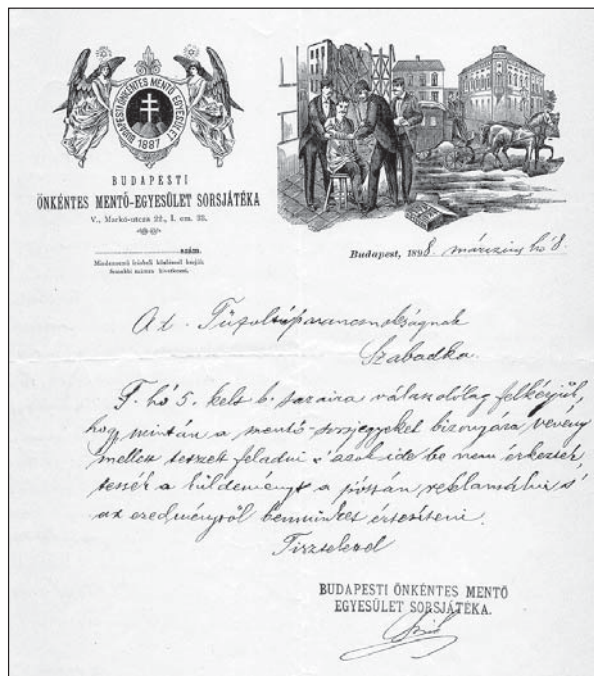 BUDAPESTI ÖNKÉNTES MENTŐ EGYESÜLET
1887
BUDAPESTI
ÖNKÉNTES MENTŐ-EGYESÜLET SORSJÁTÉKA
V., Markó-utcza 22., I. em. 33.
szám.
Budapest, 1898. márczius hó 8.
A t. Tűzoltóparancsnokságnak
Szabadka.
F. hó 5. kelt b. soraira válaszolólag felkérjük,
hogy miután a mentő-sorsjegyeket bizonyára vevény
mellett tetszett feladni s azok ide be nem érkeztek,
tessék a küldeményt a póstán reklamálni s
az eredményről bennünket értesíteni.
Tisztelettel
BUDAPESTI ÖNKÉNTES MENTŐ
EGYESÜLET SORSJÁTÉKA.